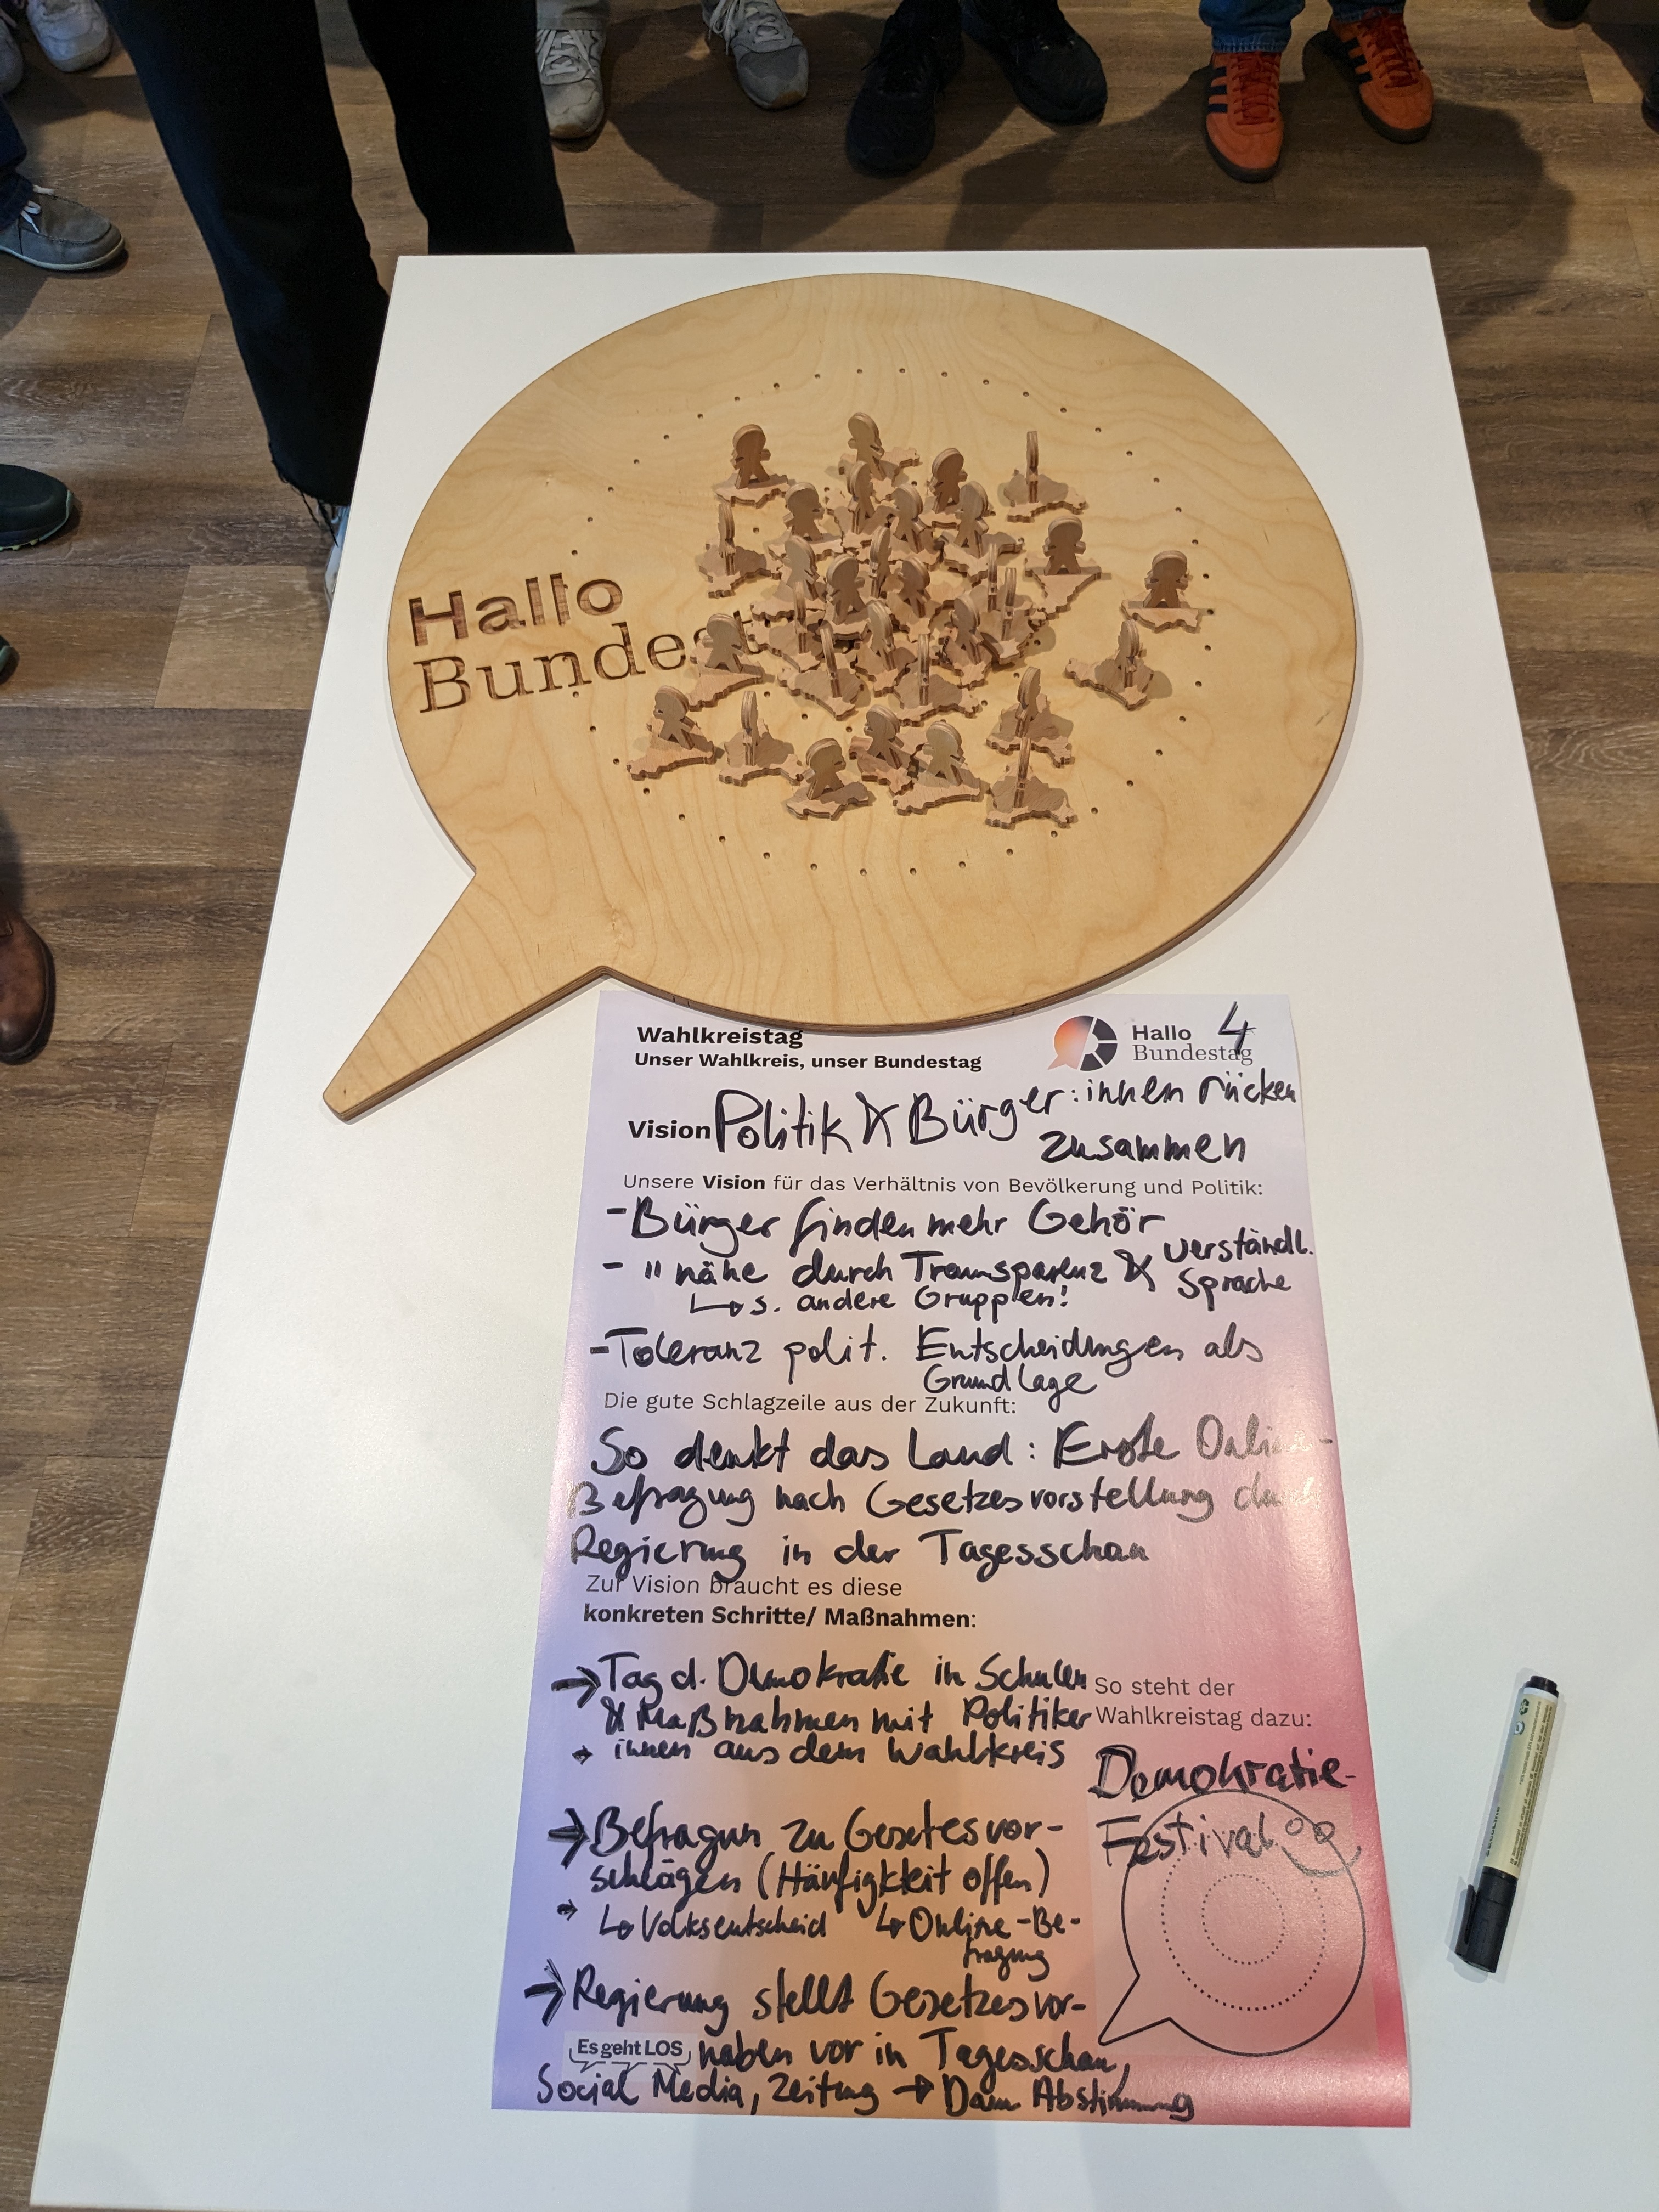 Hallo
Bundest
Wahlkreistag
Unser Wahlkreis, unser Bundestag
Hallo
Bundestag
4
Vision Politik & Bürger:innen rücken
zusammen
Unsere Vision für das Verhältnis von Bevölkerung und Politik:
- Bürger finden mehr Gehör
- " nähe durch Transparenz & verständl.
Sprache
↳ s. andere Gruppen!
- Toleranz polit. Entscheidungen als
Grundlage
Die gute Schlagzeile aus der Zukunft:
So denkt das Land: Erste Online-
Befragung nach Gesetzesvorstellung durch
Regierung in der Tagesschau
Zur Vision braucht es diese
konkreten Schritte/ Maßnahmen:
→ Tag d. Demokratie in Schulen
& Maßnahmen mit Politiker
→ innen aus dem Wahlkreis
So steht der
Wahlkreistag dazu:
Demokratie-
Festival
→ Befragun zu Gesetesvor-
schlägen (Häufigkeit offen)
→ ↳ Volksentscheid ↳ Online-Be-
fragung
→ Regierung stellt Gesetzesvor-
Es geht LOS
haben vor in Tagesschau,
Social Media, Zeitung → Dann Abstimmung